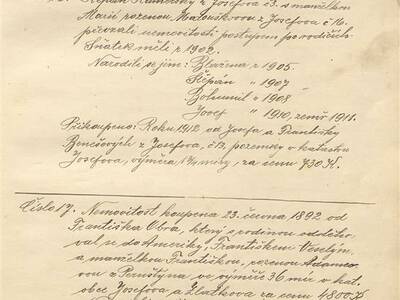 Štěpán Kamenský z Josefova č3. s manželkou
Marií rozenou Malouškovou z Josefova č 16.
převzali nemovitosti postupem po rodičích.
Sňatek měli r 1902.
Narodili se jim: Blažena r 1905.
Štěpán " 1907
Bohumil " 1908
Josef " 1910, zemř. 1911.
Přikoupeno: Roku 1912 od Josefa a Františky
Benešových z Josefova, č13, pozemky v katastru
Josefova, výměra míry, za cenu 730 K.
Číslo 17. Nemovitost koupena 23. června 1892 od
Františka Obra, který s rodinou odstěho-
val se do Ameriky, Františkem Veselým,
a manželkou Františkou, rozenou Adamco-
vou z Pernštýna, ve výměře 36 mír v kat.
obce Josefova a Zlatkova za cenu 4800 K